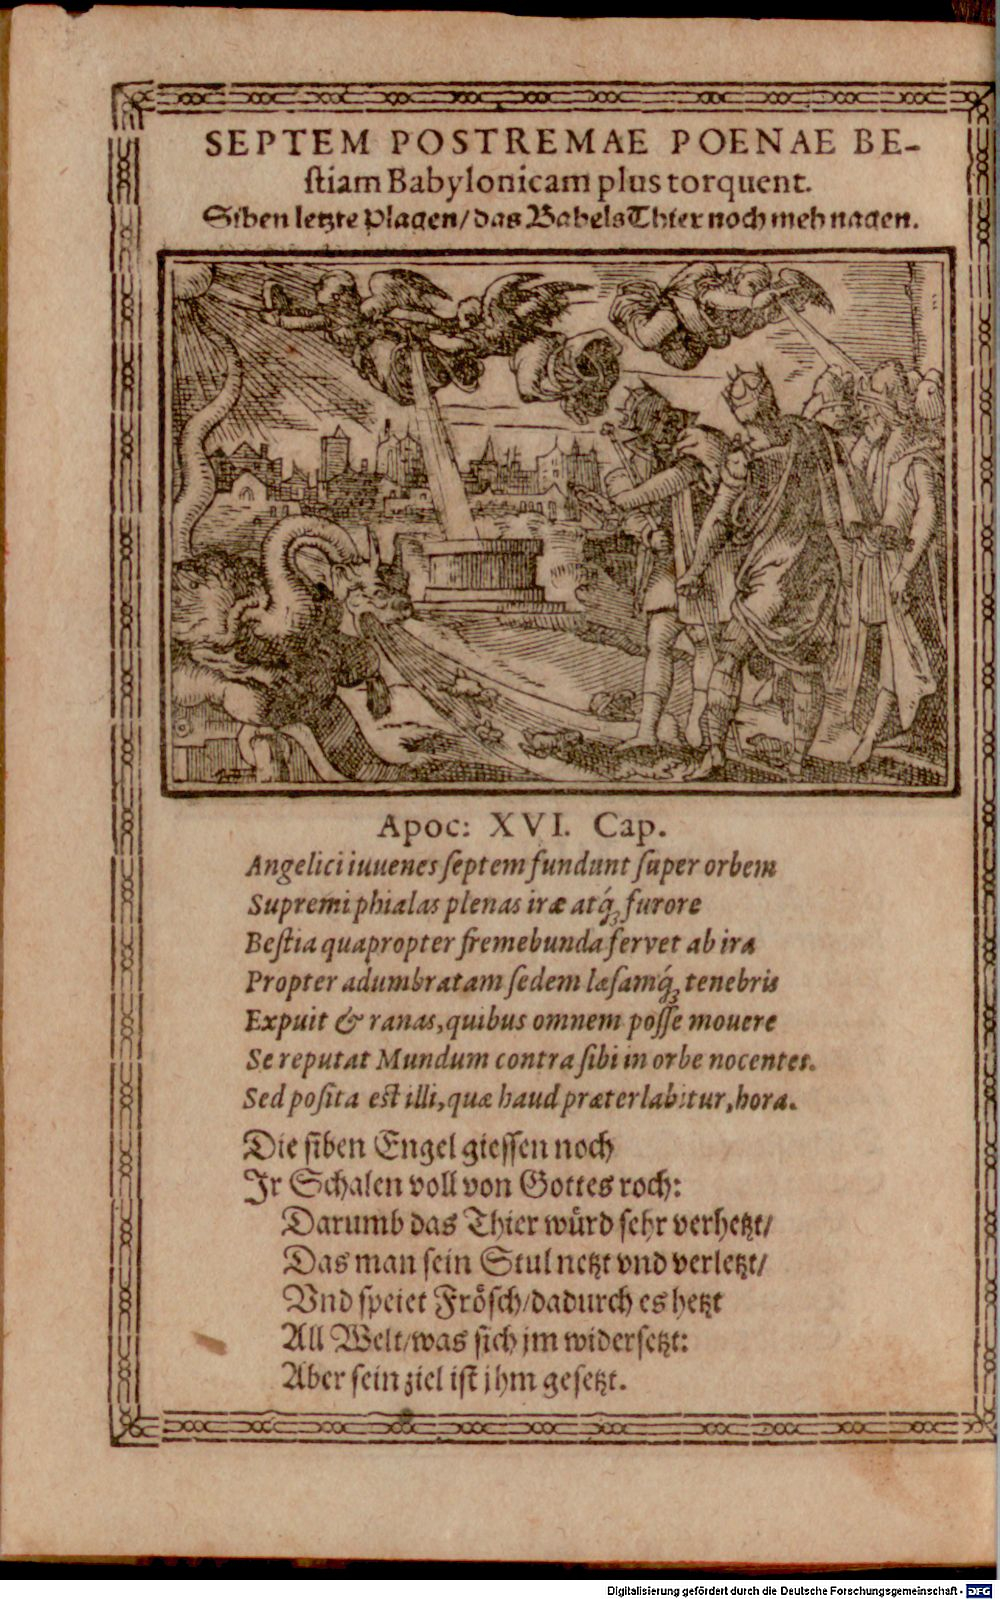 SEPTEM POSTREMAE POENAE BE-
ſtiam Babylonicam plus torquent.
Siben letzte Plagen/ das Babels Thier noch meh nagen.
Apoc: XVI. Cap.
Angelici iuuenes ſeptem fundunt ſuper orbem
Supremi phialas plenas iræ atq́ꝫ furore
Beſtia quapropter fremebunda fervet ab ira
Propter adumbratam ſedem læſamq́ꝫ tenebris
Expuit & ranas, quibus omnem poſſe mouere
Se reputat Mundum contra ſibi in orbe nocentes.
Sed poſita eſt illi, quæ haud præterlabitur, hora.
Die ſiben Engel gieſſen noch
Ir Schalen voll von Gottes roch:
Darumb das Thier wuͤrd ſehr verhetzt/
Das man ſein Stul netzt vnd verletzt/
Vnd ſpeiet Froͤſch/ dadurch es hetzt
All Welt/ was ſich jm widerſetzt:
Aber ſein ziel iſt jhm geſetzt.
Digitalisierung gefördert durch die Deutsche Forschungsgemeinschaft - DFG